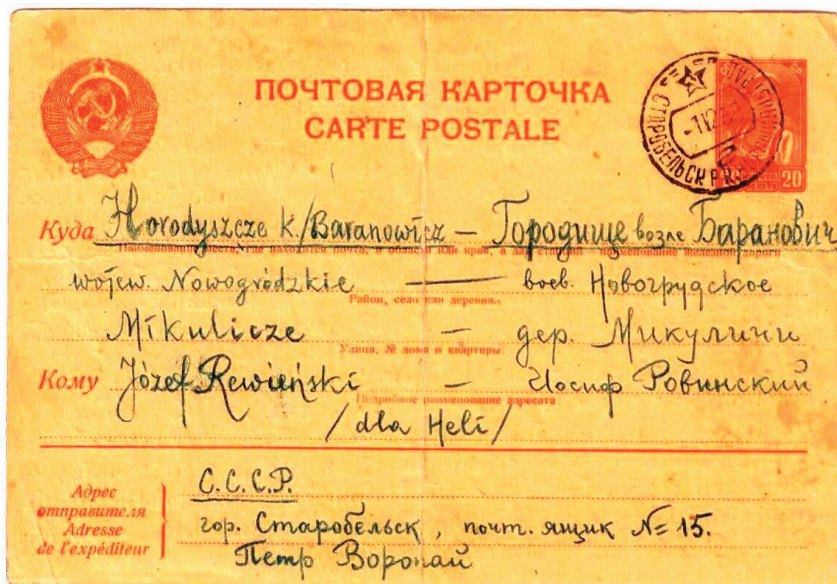 ПОЧТОВАЯ КАРТОЧКА
CARTE POSTALE
СТАРОБЕЛЬСК
20
Куда Horodyszcze k./Baranowicz — Городище возле Баранович
Наименование места, где находится почта, и области или края, а для станций — наименование железной дороги
wojew. Nowogródzkie — воев. Новогрудское
Район, село или деревня.
Mikulicze — дер. Микуличи
Улица, № дома и квартиры
Кому Józef Rewieński — Иосиф Ровинский
Подробное наименование адресата
/dla Heli/
Адрес отправителя
Adresse de l'expéditeur
С.С.С.Р.
гор. Старобельск, почт. ящик №=15.
Петр Воропай